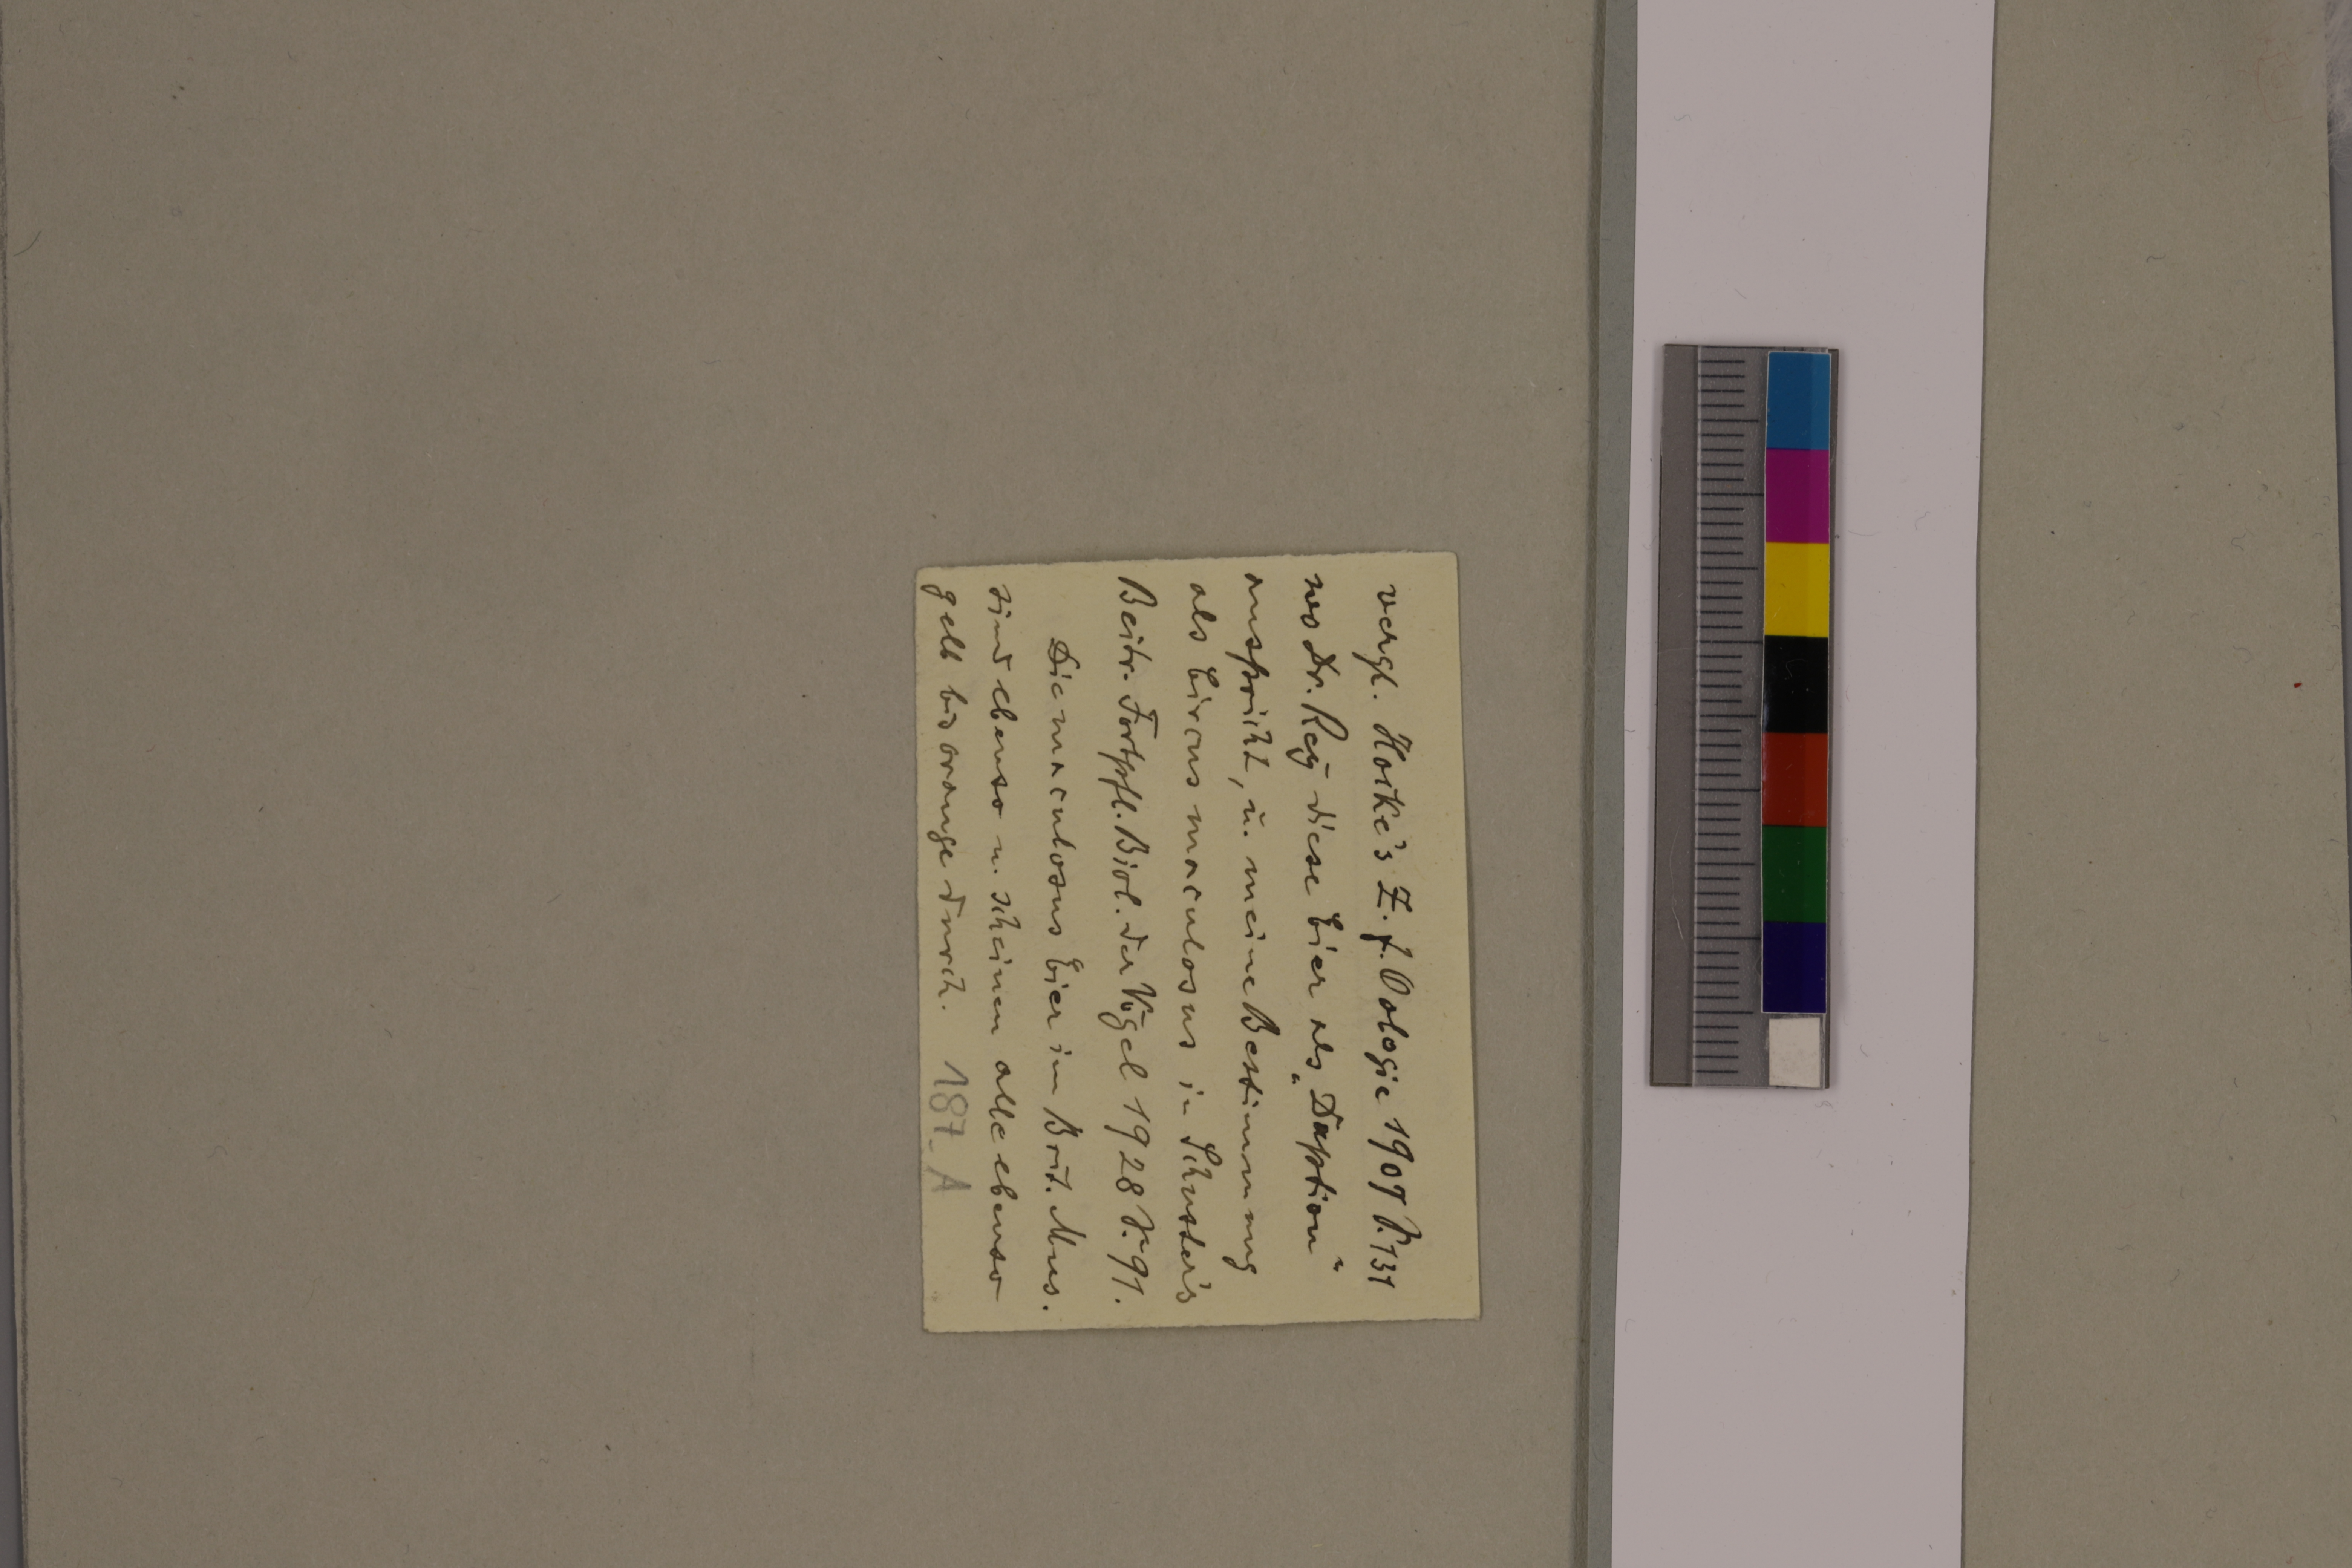 vergl. Hocke's Z. f. Oologie 1907 S. 131
wo Dr. Rey diese Eier als „Daption“
anspricht, u. meine Bestimmung
als Circus maculosus in Schuster's
Beitr. Fortpfl. Biol. der Vögel 1928 S. 91.
Die maculosus Eier im Brit. Mus.
sind ebenso u. scheinen alle ebenso
gelb bis orange durch. 187_A